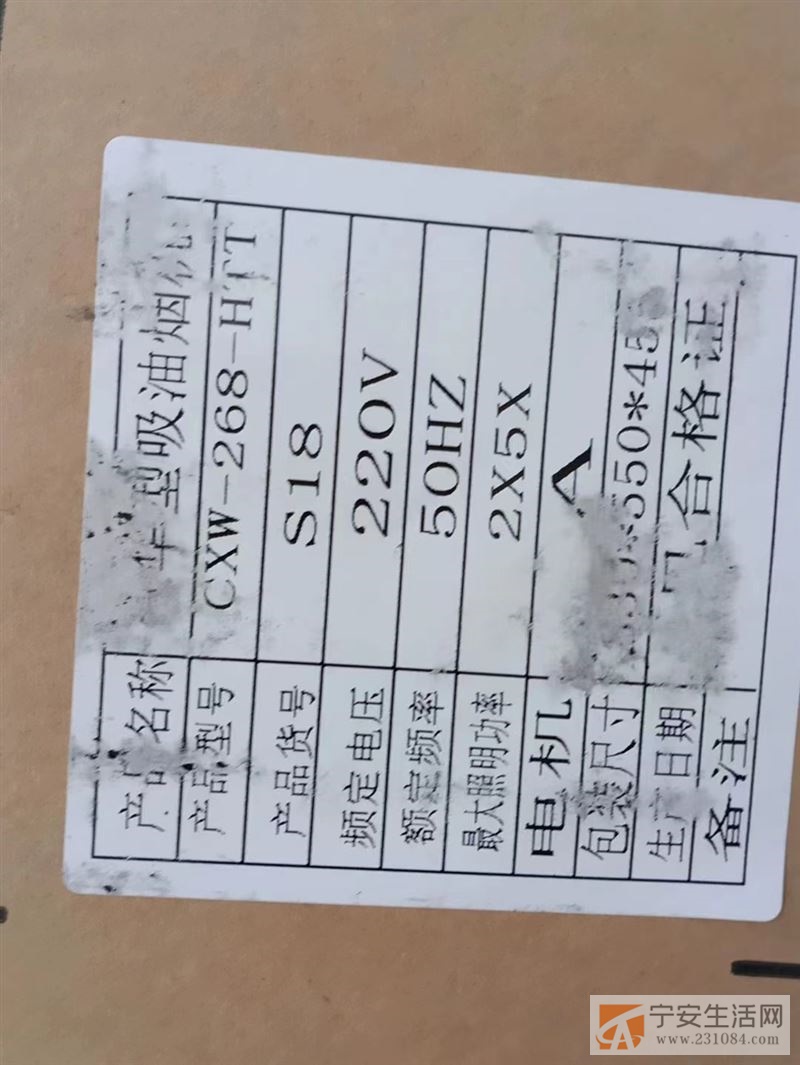 产品名称 华型吸油烟机
产品型号 CXW-268-HTT
产品货号 S18
频定电压 220V
额定频率 50HZ
最大照明功率 2X5X
电机 A
包装尺寸 *550*45
生产日期 见合格证
备注
宁安生活网
www.231084.com